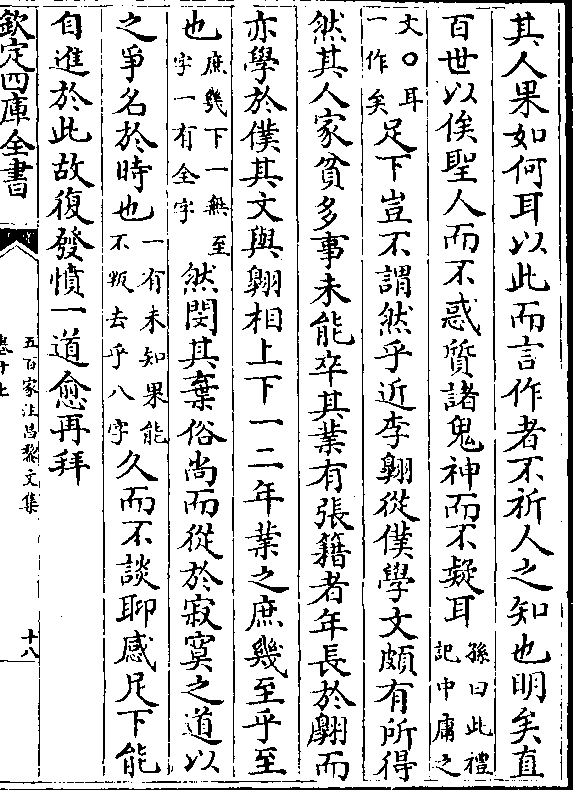 其人果如何耳以此而言作者不祈人之知也明矣直
百世以俟聖人而不惑質諸鬼神而不疑耳孫曰此禮記中庸之
文〇耳一作矣足下豈不謂然乎近李翺從僕學文頗有所得
然其人家貧多事未能卒其業有張籍者年長於翺而
亦學於僕其文與翺相上下一二年業之庶幾至乎至
也庶幾下一無至字一有全字然閔其棄俗尚而從於寂寞之道以
之爭名於時也一有未知果能不叛去乎八字久而不談聊感足下能
自進於此故復發憤一道愈再拜
欽定四庫全書
五百家注昌黎文集
卷十七
十八